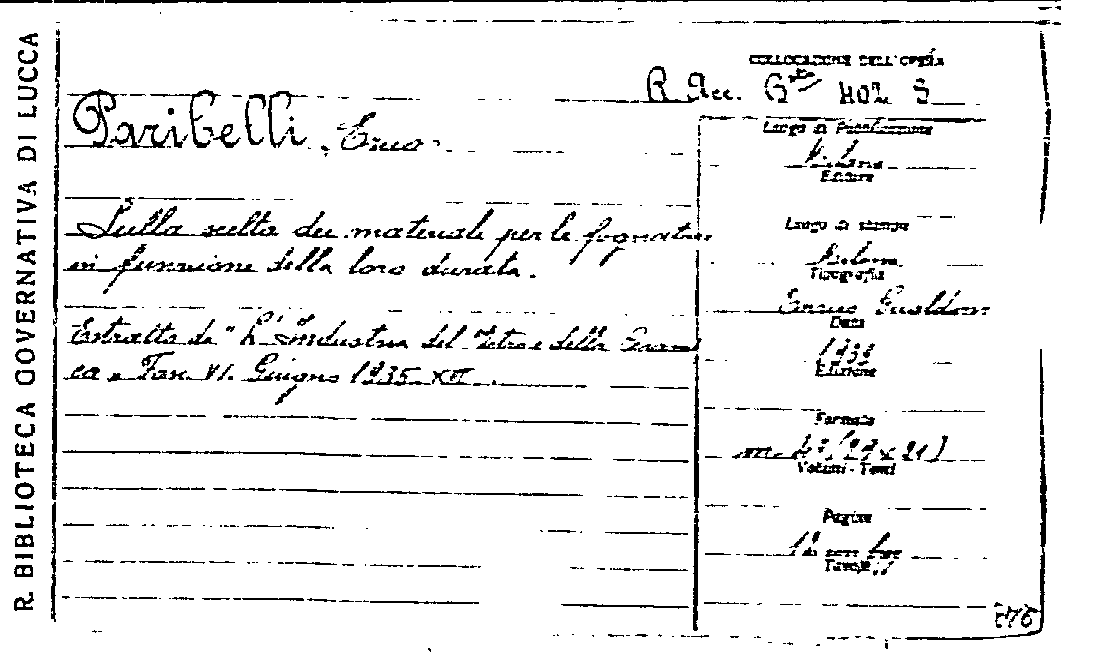 R. BIBLIOTECA GOVERNATIVA DI LUCCA
COLLOCAZIONE DELL'OPERA
R. Acc. Gta 402 5
Paribelli, Enrico
Luogo di Pubblicazione
Milano
Editore
Sulla scelta dei materiale per le fognature
in funzione della loro durata.
Luogo di stampa
Milano
Tipografia
Enrico Gualdoni
Data
1935
Edizione
Estratto da "L'Industria del Vetro e della Cerami
ca" Fasc. VI. Giugno 1935-XIII.
Formato
(27 x 21)
Volumi - Tomi
Pagine
12 con
Tavole